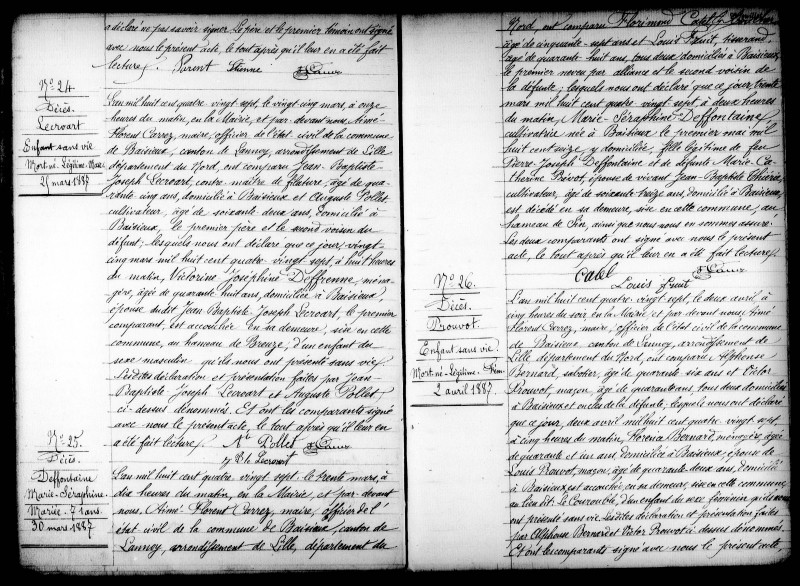 a déclaré ne pas savoir signer. Le père et le premier témoin ont signé
avec nous le présent acte, le tout après qu'il leur en a été fait
lecture. Parent Etienne
N° 24
Décès.
Lecroart
Enfant sans vie
Mort-né Légitime Masc
25 mars 1887
L'an mil huit cent quatre vingt sept, le vingt cinq mars, à onze
heures du matin, en la Mairie, et par devant nous, Aimé
Florent Correz, maire, officier de l'état civil de la commune
de Baisieux, canton de Lannoy, arrondissement de Lille
département du Nord, ont comparu Jean-Baptiste-
Joseph Lecroart, contre-maître de filature, âgé de qua-
rante cinq ans, domicilié à Baisieux et Auguste Pollet
cultivateur, âgé de soixante deux ans, domicilié à
Baisieux, le premier père et le second voisin du
défunt; lesquels nous ont déclaré que ce jour, vingt-
cinq mars mil huit cent quatre vingt sept, à huit heures
du matin, Victorine Joséphine Deffrenne, ména-
gère, âgée de quarante huit ans, domiciliée à Baisieux,
épouse dudit Jean Baptiste Joseph Lecroart, le premier
comparant, est accouchée en sa demeure, sise en cette
commune, au hameau de Breuze, d'un enfant du
sexe masculin qu'ils nous ont présenté sans vie.
Lesdites déclaration et présentation faites par Jean-
Baptiste Joseph Lecroart et Auguste Pollet
ci-dessus dénommés. Et ont les comparants signé
avec nous le présent acte, le tout après qu'il leur en
a été fait lecture. Pollet
Bte Lecroart
N° 25.
Décès.
Deffontaine
Marie-Séraphine.
Mariée. 71 ans.
30 mars 1887
L'an mil huit cent quatre vingt sept le trente mars, à
dix heures du matin, en la Mairie, et par devant
nous, Aimé Florent Correz, maire, officier de l'
état civil de la commune de Baisieux, canton de
Lannoy, arrondissement de Lille, département du
Nord, ont comparu Florimond Catel,
âgé de cinquante-sept ans et Louis Fruit, tisserand
âgé de quarante huit ans, tous deux domiciliés à Baisieux
le premier neveu par alliance et le second voisin de
la défunte, lesquels nous ont déclaré que ce jour, trente
mars mil huit cent quatre vingt sept à deux heures
du matin, Marie-Séraphine Deffontaine,
cultivatrice née à Baisieux le premier mai mil
huit cent seize, y domiciliée, fille légitime de feu
Pierre-Joseph Deffontaine et de défunte Marie-Ca-
therine Prévot, épouse de vivant Jean-Baptiste
cultivateur, âgé de soixante treize ans, domicilié à Baisieux,
est décédée en sa demeure, sise en cette commune, au
hameau de Sin, ainsi que nous nous en sommes assuré.
Les deux comparants ont signé avec nous le présent
acte, le tout après qu'il leur en a été fait lecture.
Catel
Louis Fruit
N° 26.
Décès.
Prouvot.
Enfant sans vie.
Mort-né-Légitime-Fém
2 avril 1887
L'an mil huit cent quatre vingt sept, le deux avril à
cinq heures du soir, en la Mairie, et par devant nous, Aimé
Florent Correz, maire, officier de l'état civil de la commune
de Baisieux canton de Lannoy, arrondissement de
Lille département du Nord, ont comparu Alphonse
Bernard, sabotier, âgé de quarante six ans et Victor
Prouvot, maçon, âgé de quarante ans, tous deux domiciliés
à Baisieux et oncles de la défunte, lesquels nous ont déclaré
que ce jour, deux avril mil huit cent quatre vingt sept
à cinq heures du matin, Florena Bernard, ménagère, âgée
de quarante et un ans, domiciliée à Baisieux, épouse de
Louis Prouvot, maçon, âgé de quarante deux ans, domicilié
à Baisieux est accouchée, en sa demeure, sise en cette commune
au lieu dit: Le Couroubli, d'un enfant du sexe féminin qu'ils nous
ont présenté sans vie. Lesdites déclaration et présentation faites
par Alphonse Bernard et Victor Prouvot ci-dessus dénommés.
Et ont les comparants signé avec nous le présent acte,